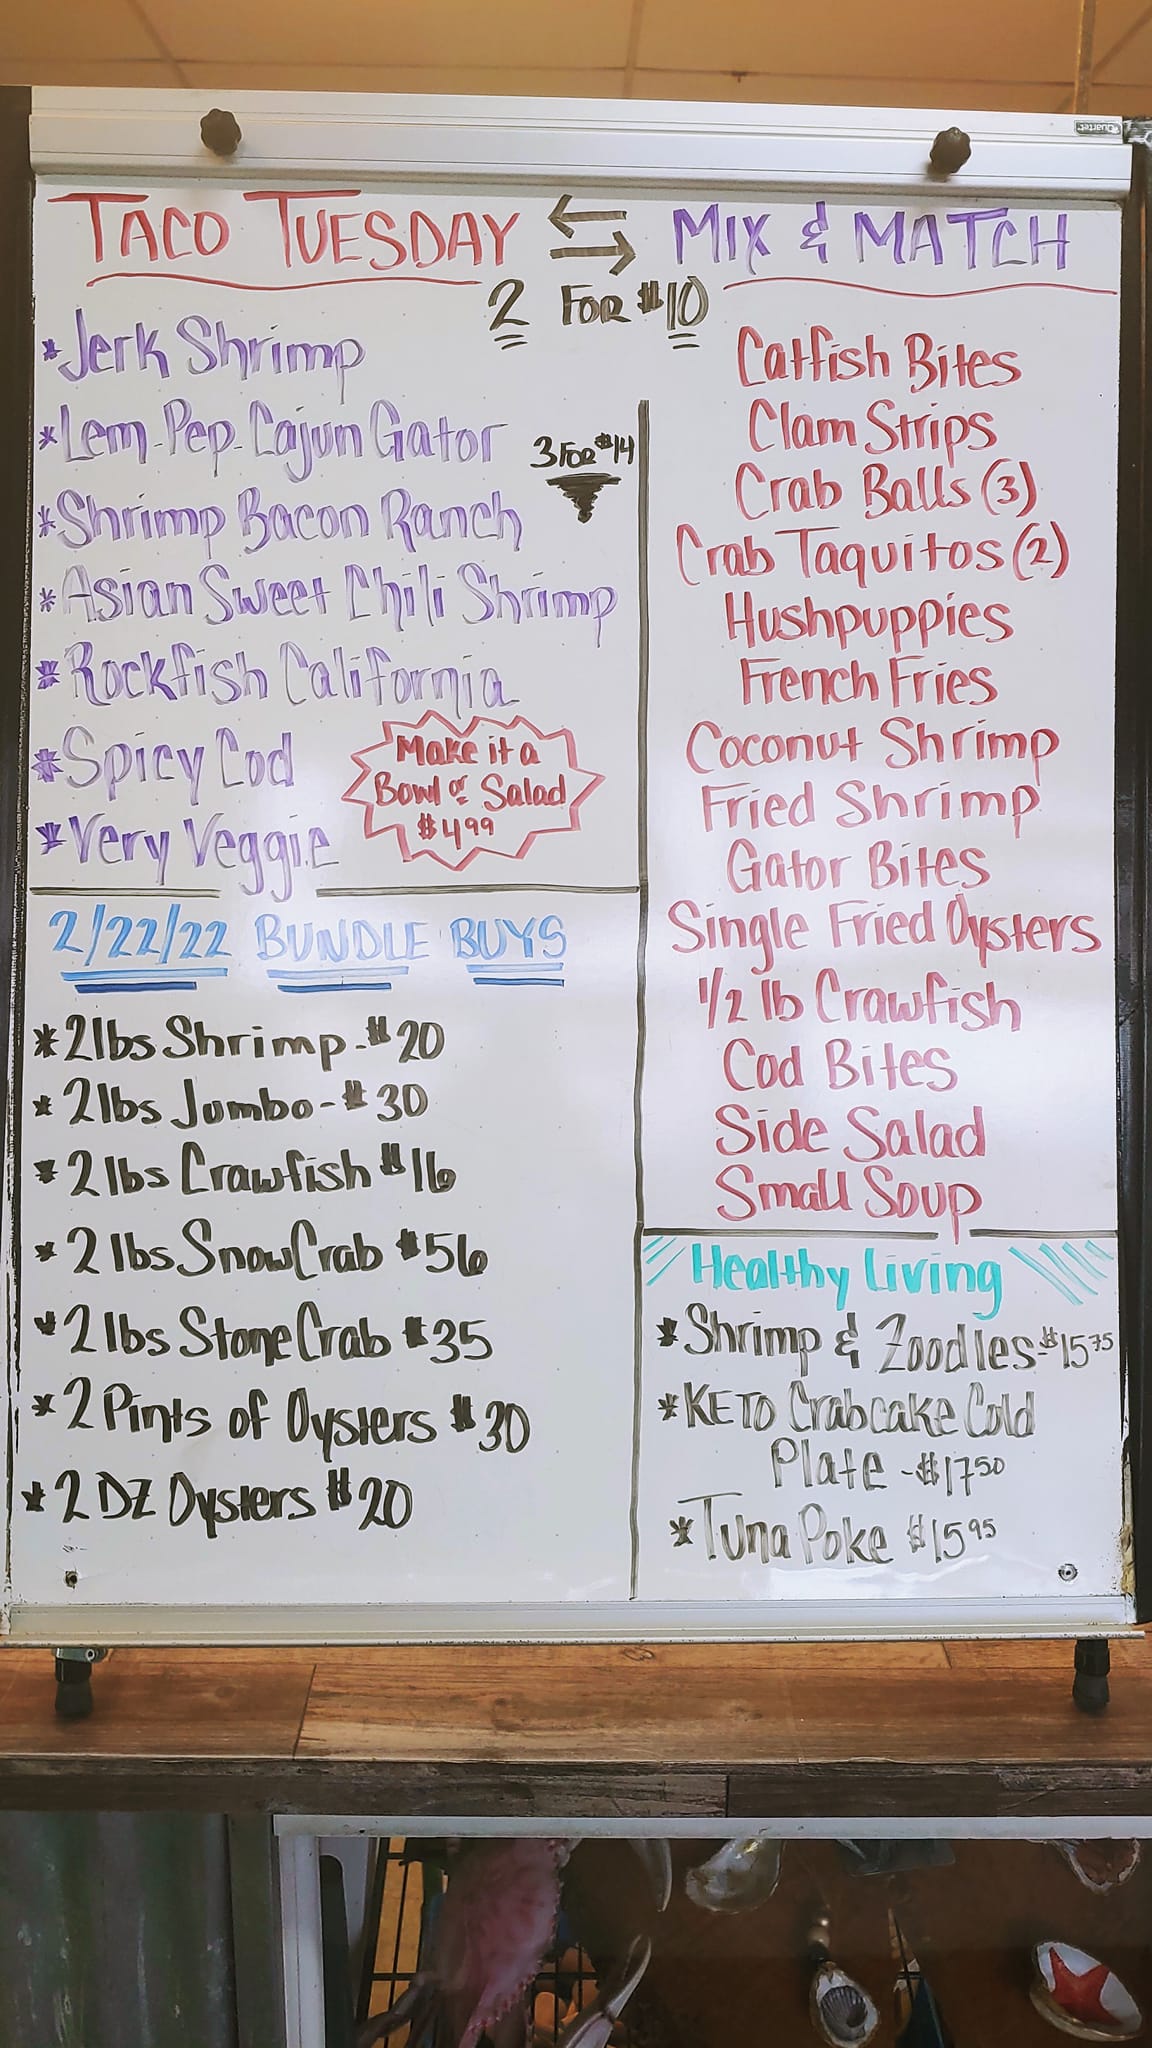 Quartet
TACO TUESDAY
MIX & MATCH
2 FOR $10
*Jerk Shrimp
*Lem-Pep-Cajun Gator
3 FOR $14
*Shrimp Bacon Ranch
*Asian Sweet Chili Shrimp
*Rockfish California
*Spicy Cod
*Very Veggie
Make it a
Bowl or Salad
$4.99
Catfish Bites
Clam Strips
Crab Balls (3)
Crab Taquitos (2)
Hushpuppies
French Fries
Coconut Shrimp
Fried Shrimp
Gator Bites
Single Fried Oysters
1/2 lb Crawfish
Cod Bites
Side Salad
Small Soup
2/22/22 BUNDLE BUYS
*2lbs Shrimp-$20
*2lbs Jumbo-$30
*2lbs Crawfish $16
*2lbs SnowCrab $56
*2lbs StoneCrab $35
*2 Pints of Oysters $30
*2 DZ Oysters $20
Healthy Living
*Shrimp & Zoodles-$15.75
*KETO Crabcake Cold
Plate -$17.50
*Tuna Poke $15.95